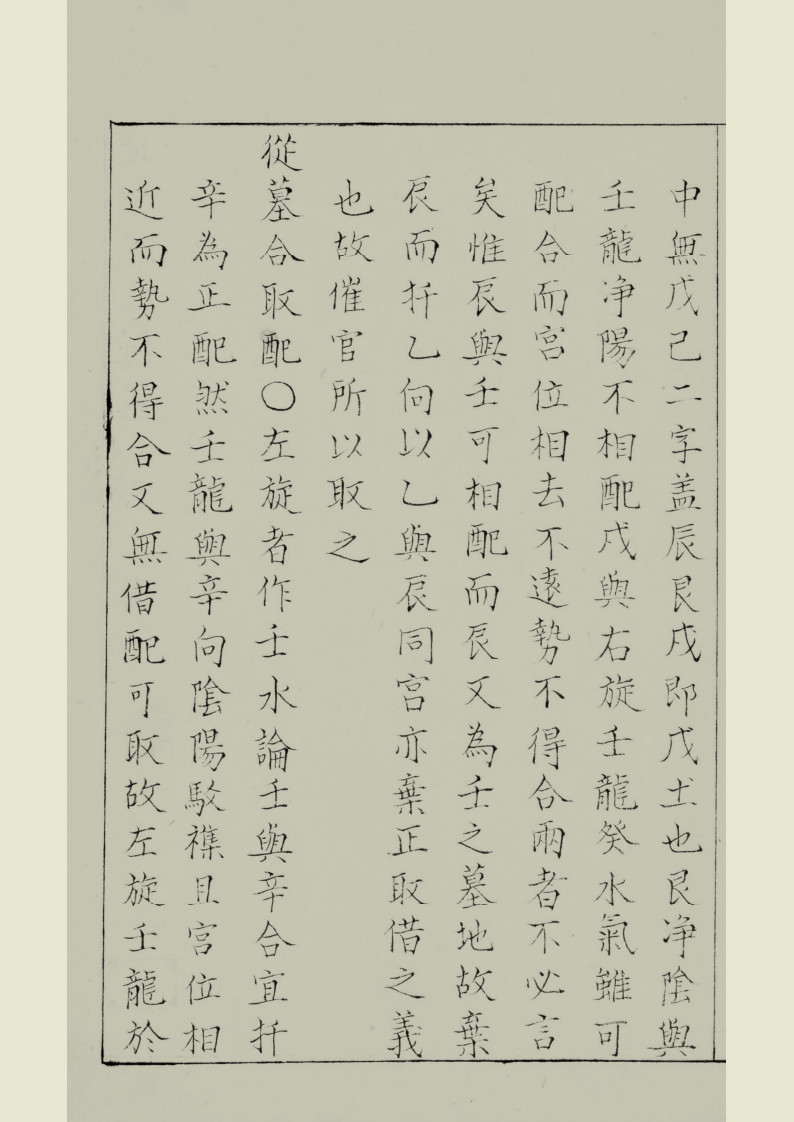 中無戊己二字盖辰艮戌即戊土也艮净陰與
壬龍净陽不相配戌與右旋壬龍癸水氣雖可
配合而宫位相去不遠勢不得合兩者不必言
矣惟辰與壬可相配而辰又為壬之墓地故棄
辰而扦乙向以乙與辰同宫亦棄正取借之義
也故催官所以取之
從墓合取配〇左旋者作壬水論壬與辛合宜扦
辛為正配然壬龍與辛向陰陽駁襍且宫位相
近而勢不得合又無借配可取故左旋壬龍於